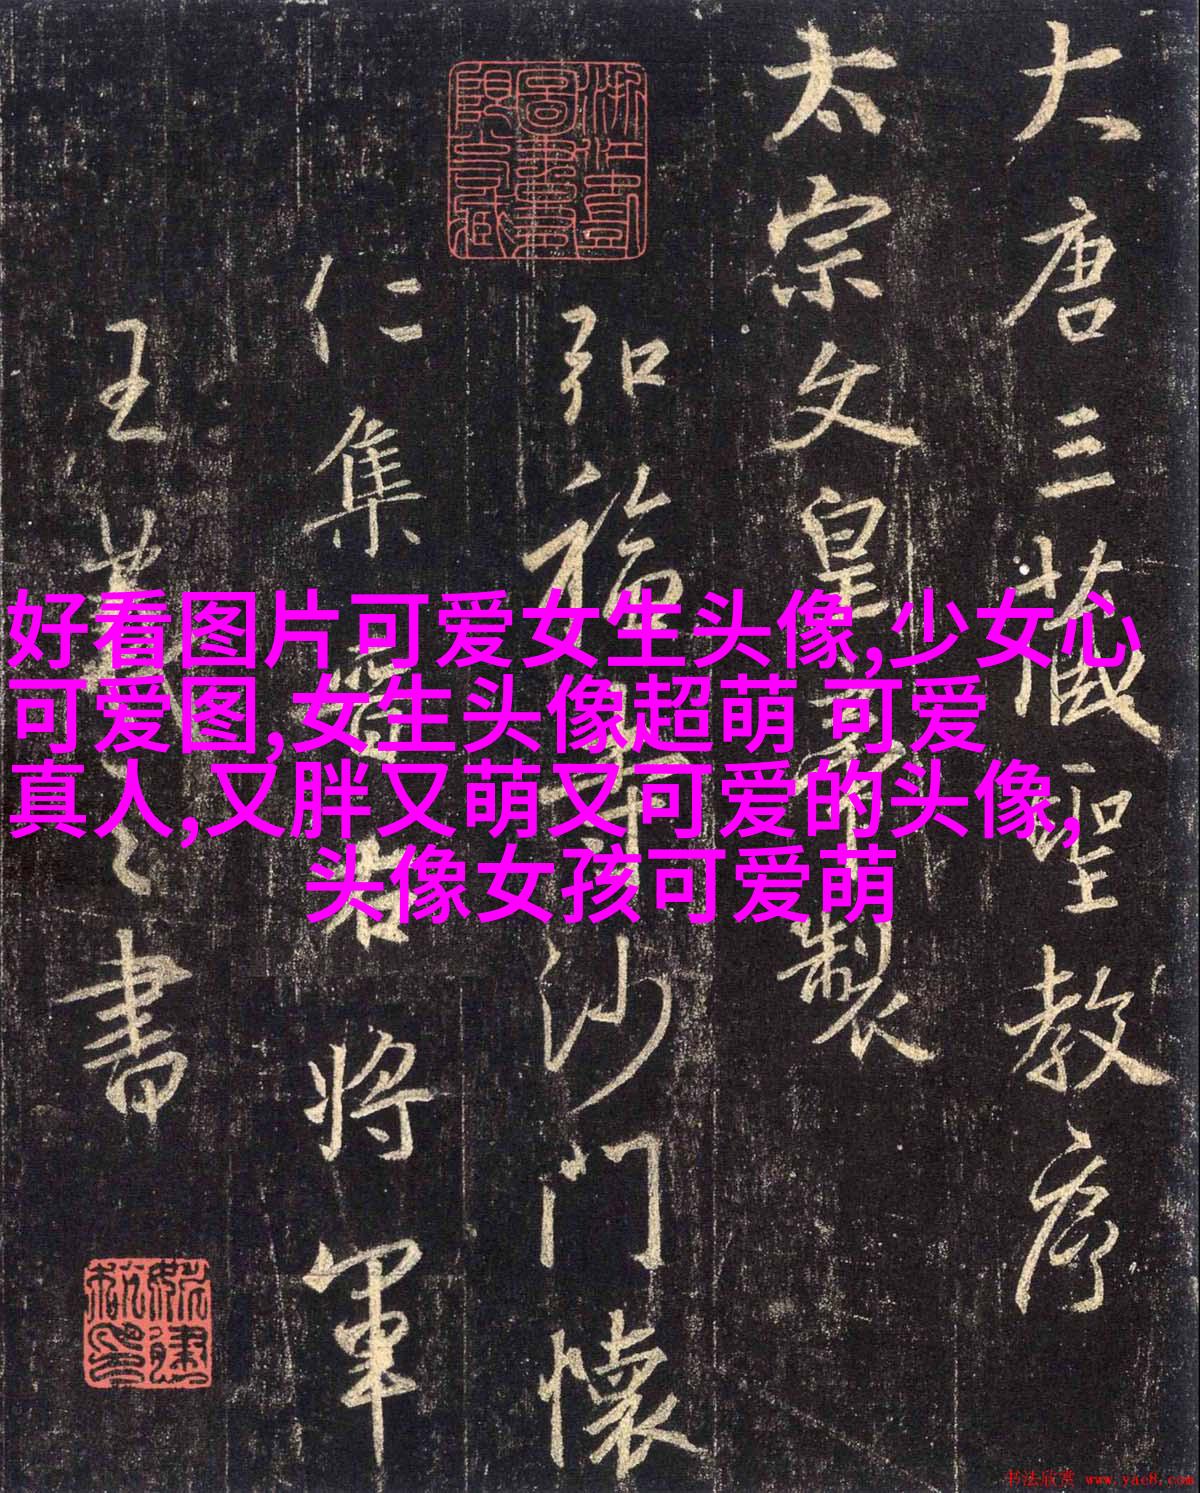 大唐三藏聖教序
太宗文皇帝製
弘福寺沙門懷
仁集晉右將軍
王羲之書
好看图片可爱女生头像,少女心
可爱图,女生头像超萌 可爱
真人,又胖又萌又可爱的头像,
头像女孩可爱萌
书法欣赏 www.yac8.com